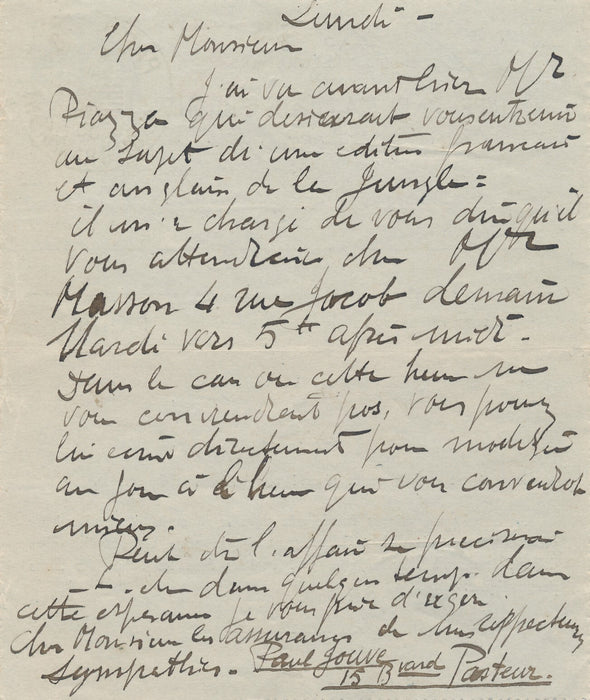 Lundi -
Cher Monsieur
J'ai vu avant hier Mr
Piazza qui desirerait vous entretenir
au sujet d'une edition francaise
et anglaise de la Jungle =
il m'a chargé de vous dire qu'il
vous attendrait chez Mr
Masson 4 rue Jacob demain
Mardi vers 5h après midi -
Dans le cas ou cette heure ne
vous conviendrait pas, vous pouvez
lui ecrire directement pour modifier
au jour et à l'heure qui vous conviendrait
mieux.
Peut être l'affaire se precisera
t-elle dans quelques temps. dans
cette esperance je vous prie d'agreer
Cher Monsieur les assurances de mes respectueuses
sympathies - Paul Jouve
15 Bvard Pasteur.